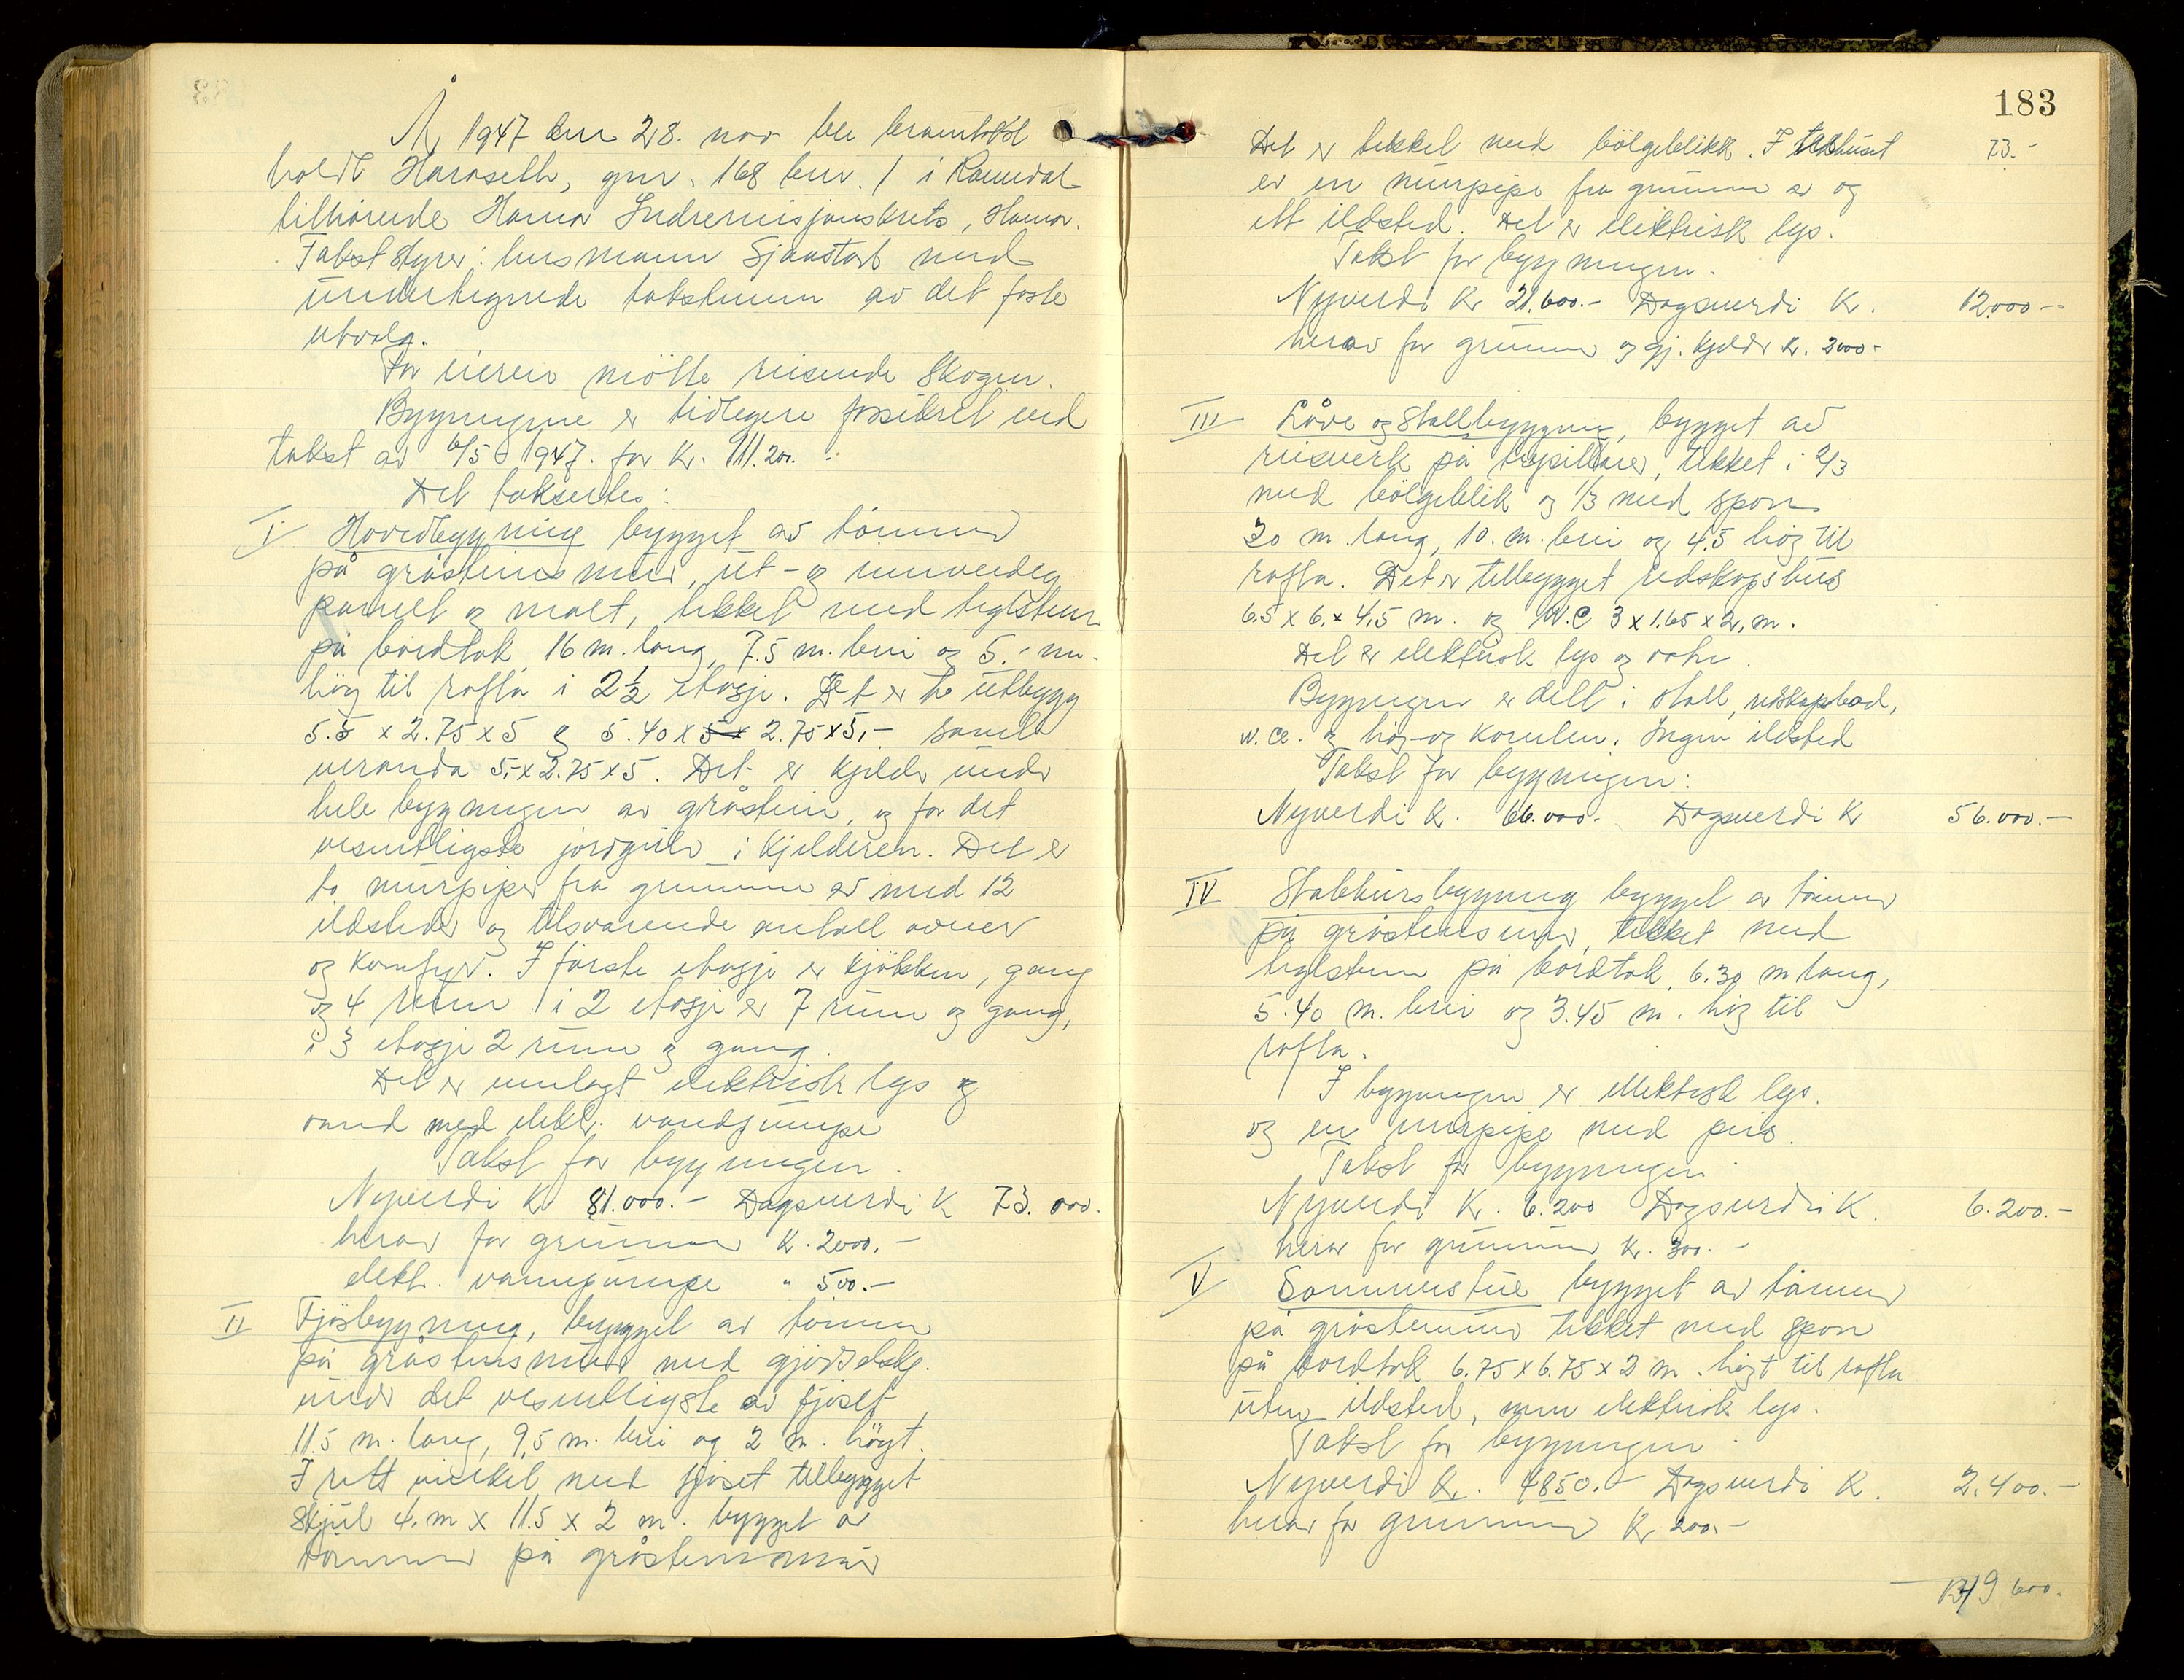 År 1947 den 28. nov ble branntakst
holdt Haraseth, gnr. 168 bnr. 1 i Romedal
tilhörende Hamar Indremisjonskrets, Hamar.
Takststyrer: lensmann Sjaastad med
undertegnede takstmenn av det faste
utvalg.
For eieren mötte reisende Skogen.
Bygningene er tidligere forsikret ved
takst av 6/5 1947. for Kr. 111.200.
Det takseertes:
I Hovedbygning bygget av tömmer
på gråsteinsmur, ut- og innvendig
panelt og malt, tekket med teglstein
på bordtak, 16 m. lang, 7.5 m. brei og 5.- m.
hög til rafta i 2½ etasje. Det er to utbygg
5.5 x 2.75 x 5 og 5.40 x 2.75 x 5,- samt
veranda 5,- x 2.75 x 5. Det er kjeller under
hele bygningen av gråstein, og for det
vesentligste jordgulv i kjelderen. Det er
to murpiper fra grunnen av med 12
ildsteder og tilsvarende antall ovner
og komfyr. I förste etasje er kjökken, gang
og 4 rum i 2 etasje er 7 rum og gang,
i 3 etasje 2 rum og gang.
Det er innlagt elektrisk lys og
vand med elektr. vandpumpe
Takst for bygningen.
Nyverdi Kr 81.000.- Dagsverdi K 73.000.
herav for grunnen K. 2000.-
elekt. vannpumpe " 500.-
II Fjösbygning, bygget av tömmer
på gråsteinsmur med gjödselskj.
under det vesentligste av fjöset
11.5 m. lang, 9,5 m. brei og 2 m. högt.
I rett vinkel med fjöset tilbygget
skjul 4. m x 11.5 x 2 m. bygget av
tömmer på gråsteinsmur
183
Det er tekket med bölgeblikk. I 73.-
er en murpipe fra grunnen av og
ett ildsted. Det er elektrisk lys.
Takst for bygningen.
Nyverdi Kr 21.600.- Dagsverdi Kr. 12.000--
herav for grunnen og gj. kjeller Kr. 2000-
III Låve og stallbygning, bygget av
reisverk på trepillarer, tekket i 2/3
med bölgeblik og 1/3 med spon
30 m. lang, 10. m. brei og 4.5 hög til
rafta. Det er tilbygget redskapshus
6.5 x 6. x 4,5 m. og W.C 3 x 1.65 x 2, m.
Det er elektrisk lys og vatn.
Bygningen er delt i stall, redskapsbod,
w.c. og höy- og kornlem. Ingen ildsted
Takst for bygningen:
Nyverdi K. 66.000.- Dagsverdi K 56.000.-
IV Stabbursbygning bygget av tömmer
på gråsteinsmur, tekket med
teglstein på bordtak, 6.30 m lang,
5.40 m. brei og 3.45 m. hög til
rafta.
I bygningen er elektrisk lys.
og en murpipe med peis.
Takst for bygningen
Nyverdi Kr. 6.200 Dagsverdi K. 6.200.-
herav for grunnen Kr. 300.-
V Sommerstue bygget av tömmer
på gråsteinmur tekket med spon
på bordtak 6.75 x 6.75 x 2 m. högt til rafta
uten ildsted, men elektrisk lys.
Takst for bygningen
Nyverdi Kr. 4850.- Dagsverdi K. 2.400.-
herav for grunnen Kr 200.-
149 600.